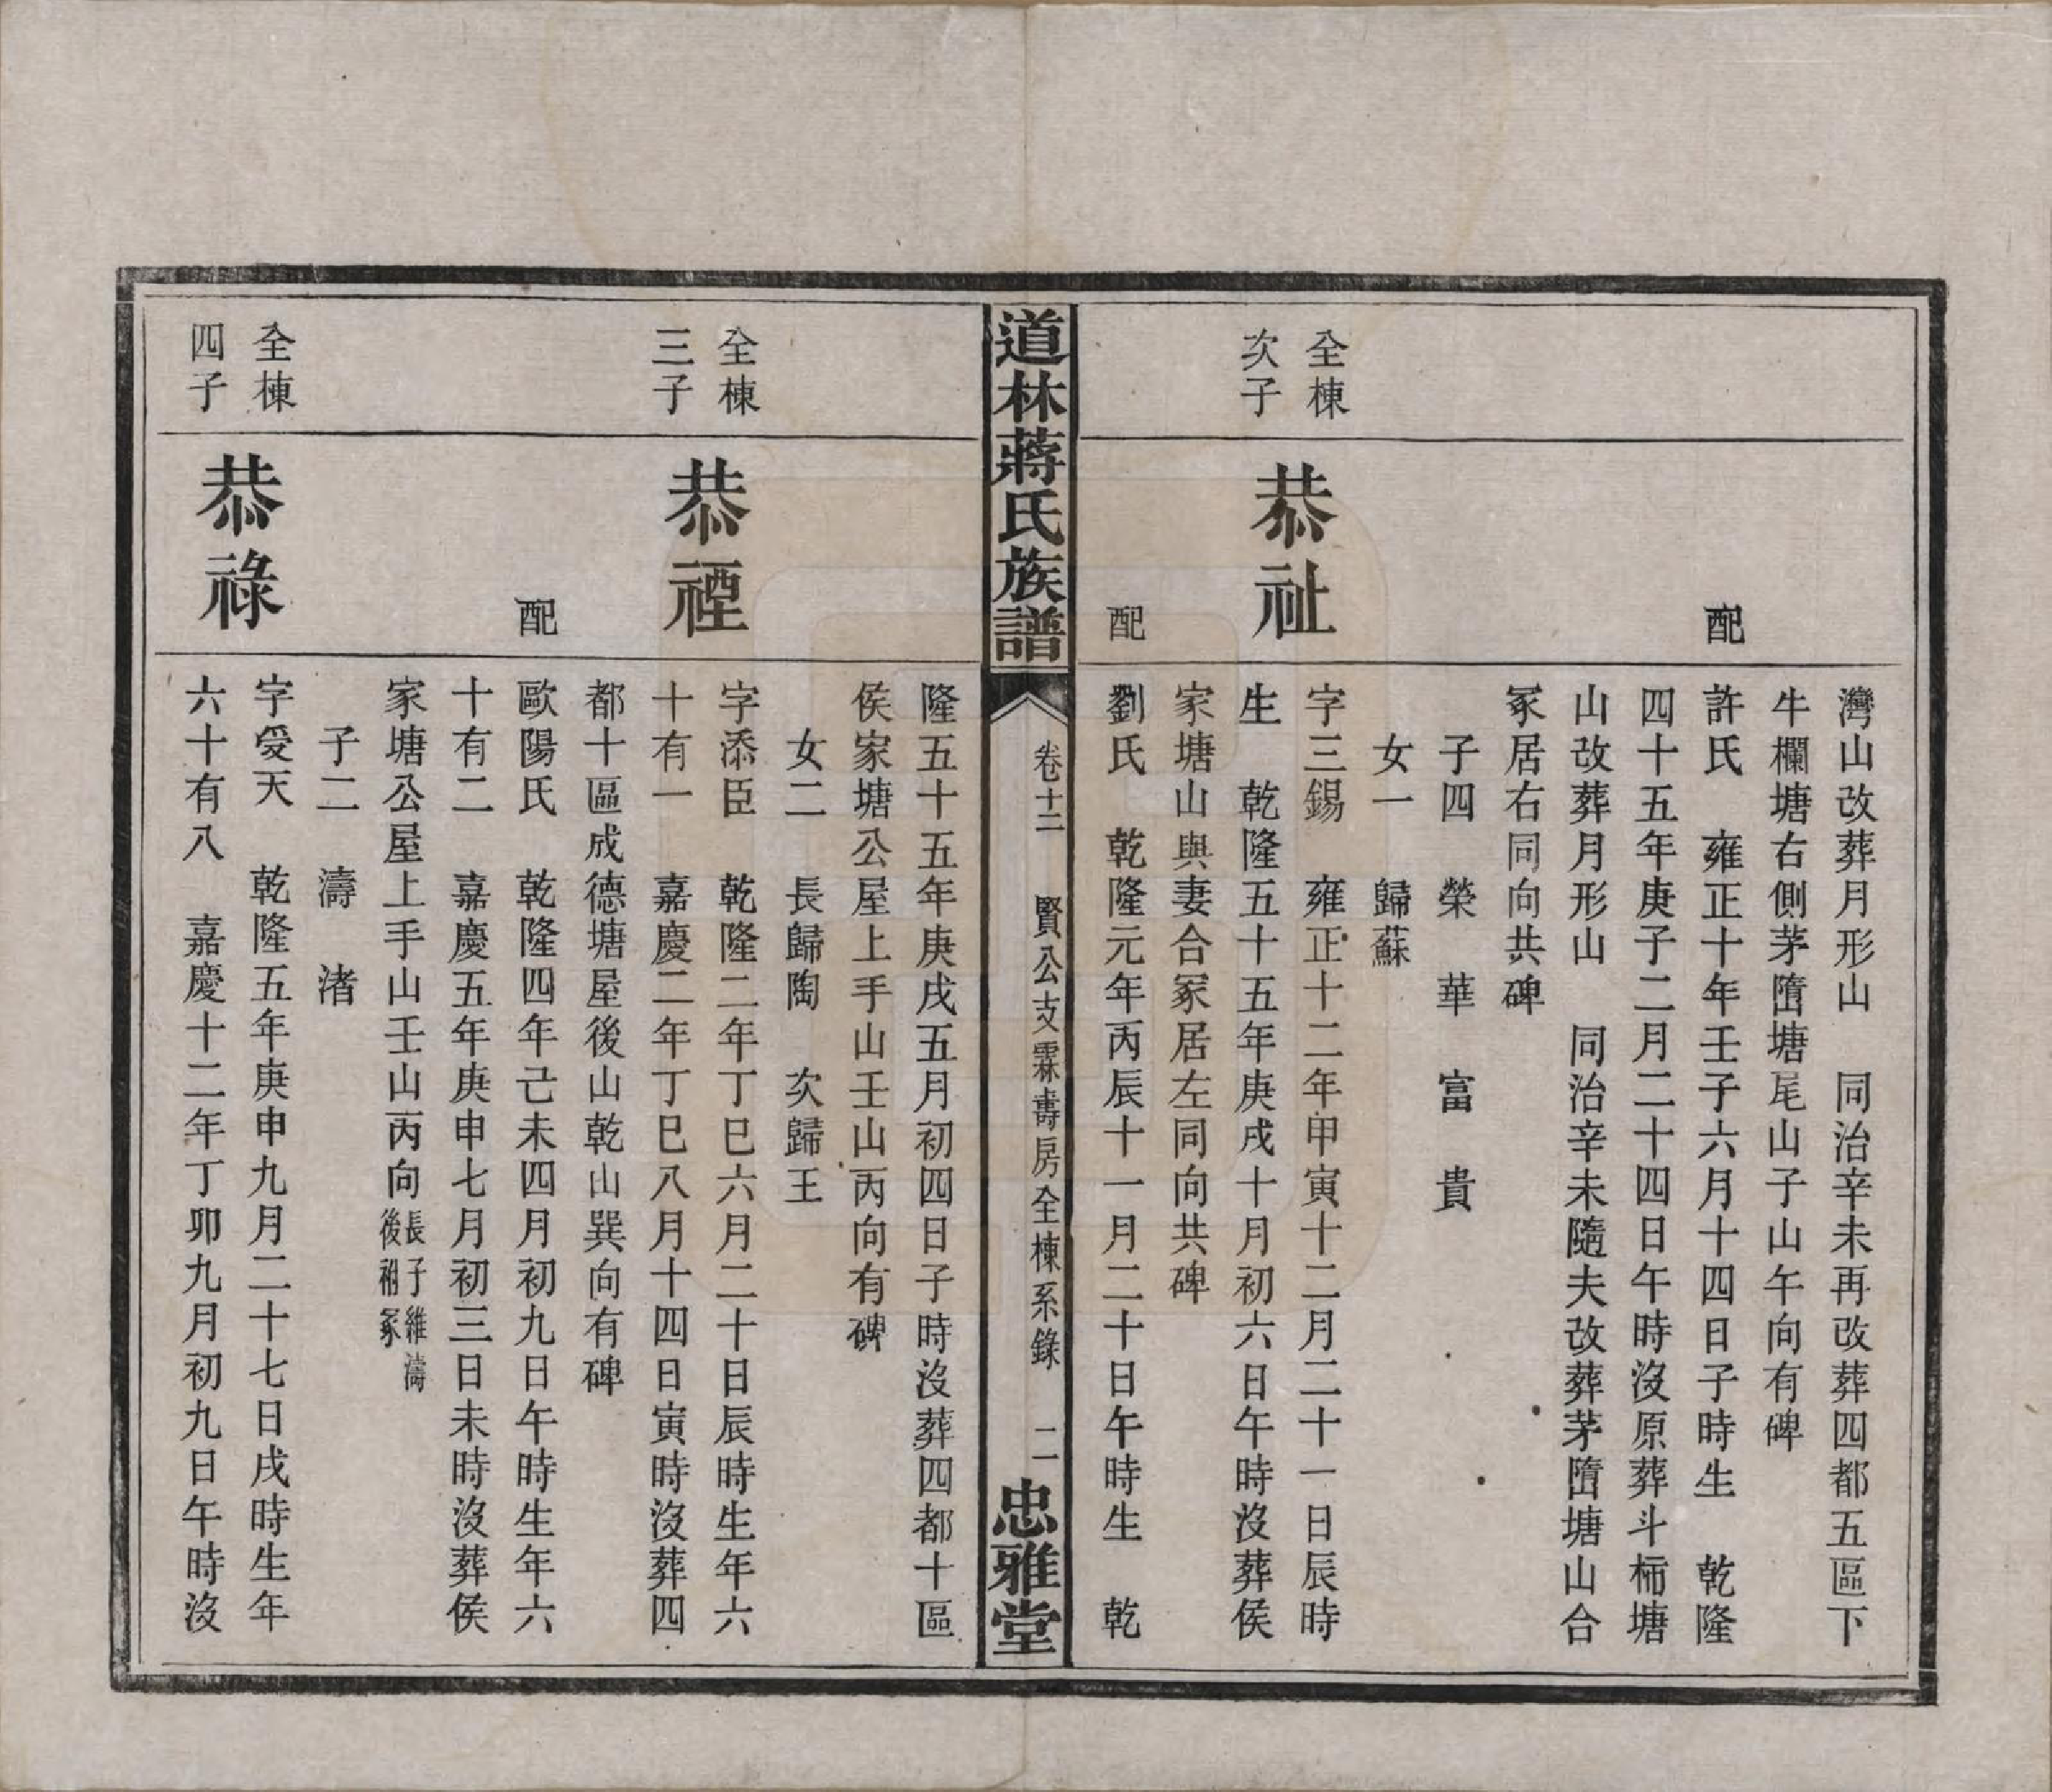 灣山改葬月形山　同治辛未再改葬四都五區下
牛欄塘右側茅㙐塘尾山子山午向有碑
配
許氏　雍正十年壬子六月十四日子時生　乾隆
四十五年庚子二月二十四日午時沒原葬斗柿塘
山改葬月形山　同治辛未隨夫改葬茅㙐塘山合
冢居右同向共碑
子四　榮　華　富　貴
女一　歸蘇
全棟
次子
恭祉
字三錫　雍正十二年甲寅十二月二十一日辰時
生　乾隆五十五年庚戌十月初六日午時沒葬侯
家塘山與妻合冢居左同向共碑
配
劉氏　乾隆元年丙辰十一月二十日午時生　乾
道林蔣氏族譜
卷十二　賢公支霖壽房全棟系錄　二
忠雅堂
隆五十五年庚戌五月初四日子時沒葬四都十區
侯家塘公屋上手山壬山丙向有碑
女二　長歸陶　次歸王
全棟
三子
恭禋
字添臣　乾隆二年丁巳六月二十日辰時生年六
十有一　嘉慶二年丁巳八月十四日寅時沒葬四
都十區成德塘屋後山乾山巽向有碑
配
歐陽氏　乾隆四年己未四月初九日午時生年六
十有二　嘉慶五年庚申七月初三日未時沒葬侯
家塘公屋上手山壬山丙向長子維濤後祔冢
子二　濤　渚
全棟
四子
恭祿
字受天　乾隆五年庚申九月二十七日戌時生年
六十有八　嘉慶十二年丁卯九月初九日午時沒